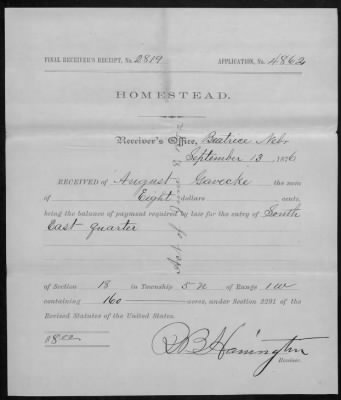 FINAL RECEIVER'S RECEIPT, No. 2819 APPLICATION, No. 4862
HOMESTEAD.
Receiver's Office, Beatrice Nebr
September 13 1876
RECEIVED of August Gaveske the sum
of Eight dollars cents,
being the balance of payment required by law for the entry of South
East quarter
of Section 18 in Township 5 N of Range 1 W
containing 160 acres, under Section 2291 of the
Revised Statutes of the United States.
$8.00
R B Harrington
Receiver.
Act of June 8